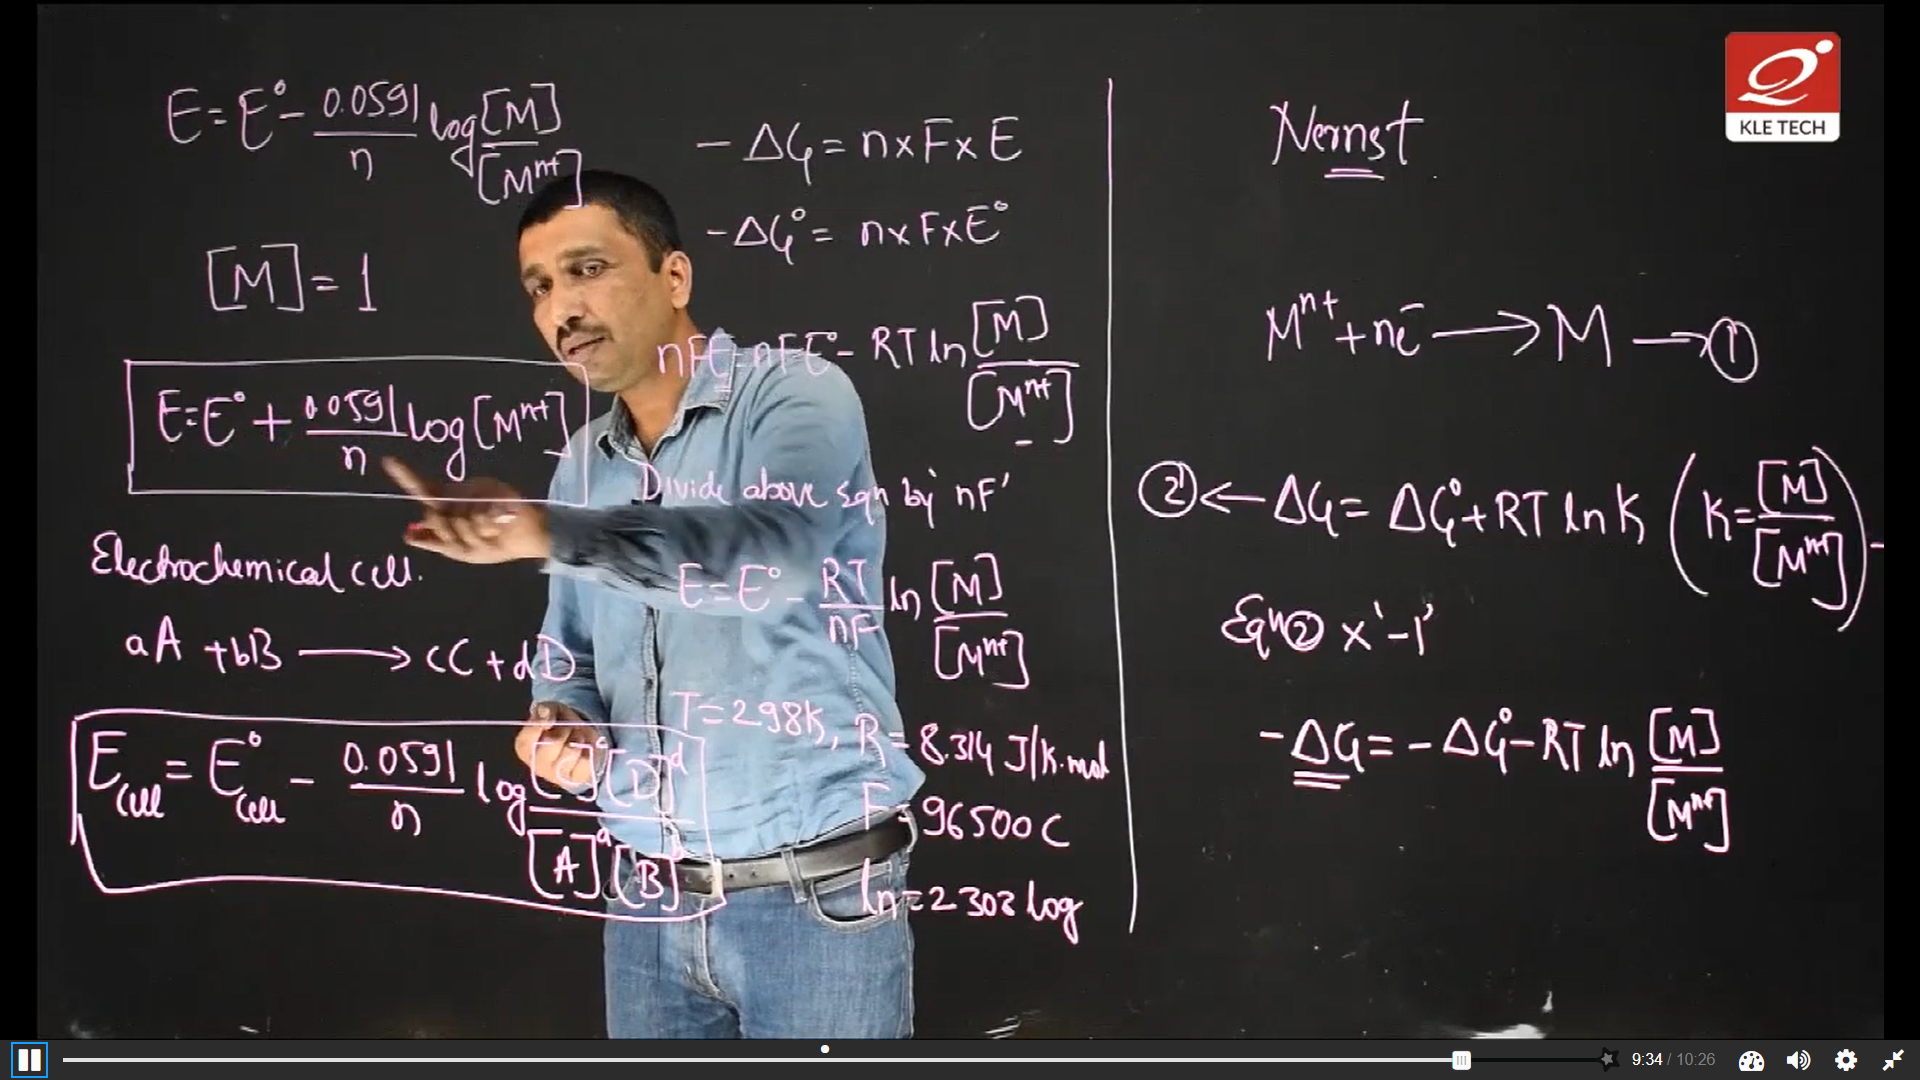 E = E° - 0.0591/n log [M]/[Mⁿ⁺]
[M] = 1
E = E° + 0.0591/n log [Mⁿ⁺]
Electrochemical cell.
aA + bB ⟶ cC + dD
E cell = E° cell - 0.0591/n log [C]ᶜ[D]ᵈ/[A]ᵃ[B]ᵇ
- ΔG = n x F x E
- ΔG° = n x F x E°
nFE = nFE° - RT ln [M]/[Mⁿ⁺]
Divide above eqn by 'nF'
E = E° - RT/nF ln [M]/[Mⁿ⁺]
T = 298K, R = 8.314 J/K.mol
F = 96500 C
ln = 2.303 log
KLE TECH
Nernst
Mⁿ⁺ + ne⁻ ⟶ M ⟶ ①
② ← ΔG = ΔG° + RT ln K (K = [M]/[Mⁿ⁺])
Eqn ② x '-1'
- ΔG = - ΔG° - RT ln [M]/[Mⁿ⁺]
9:34 / 10:26